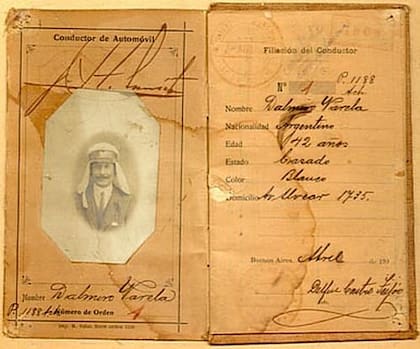 Conductor de Automóvil
Nombre Dalmiro Varela
P. 1188 Ach Número de Orden
Filiación del Conductor
P. 1188
Nº 1 Ach
Nombre Dalmiro Varela
Nacionalidad Argentino
Edad 42 años
Estado Casado
Color Blanco
Domicilio Av Alvear 1735.
Buenos Aires, Abril de 190